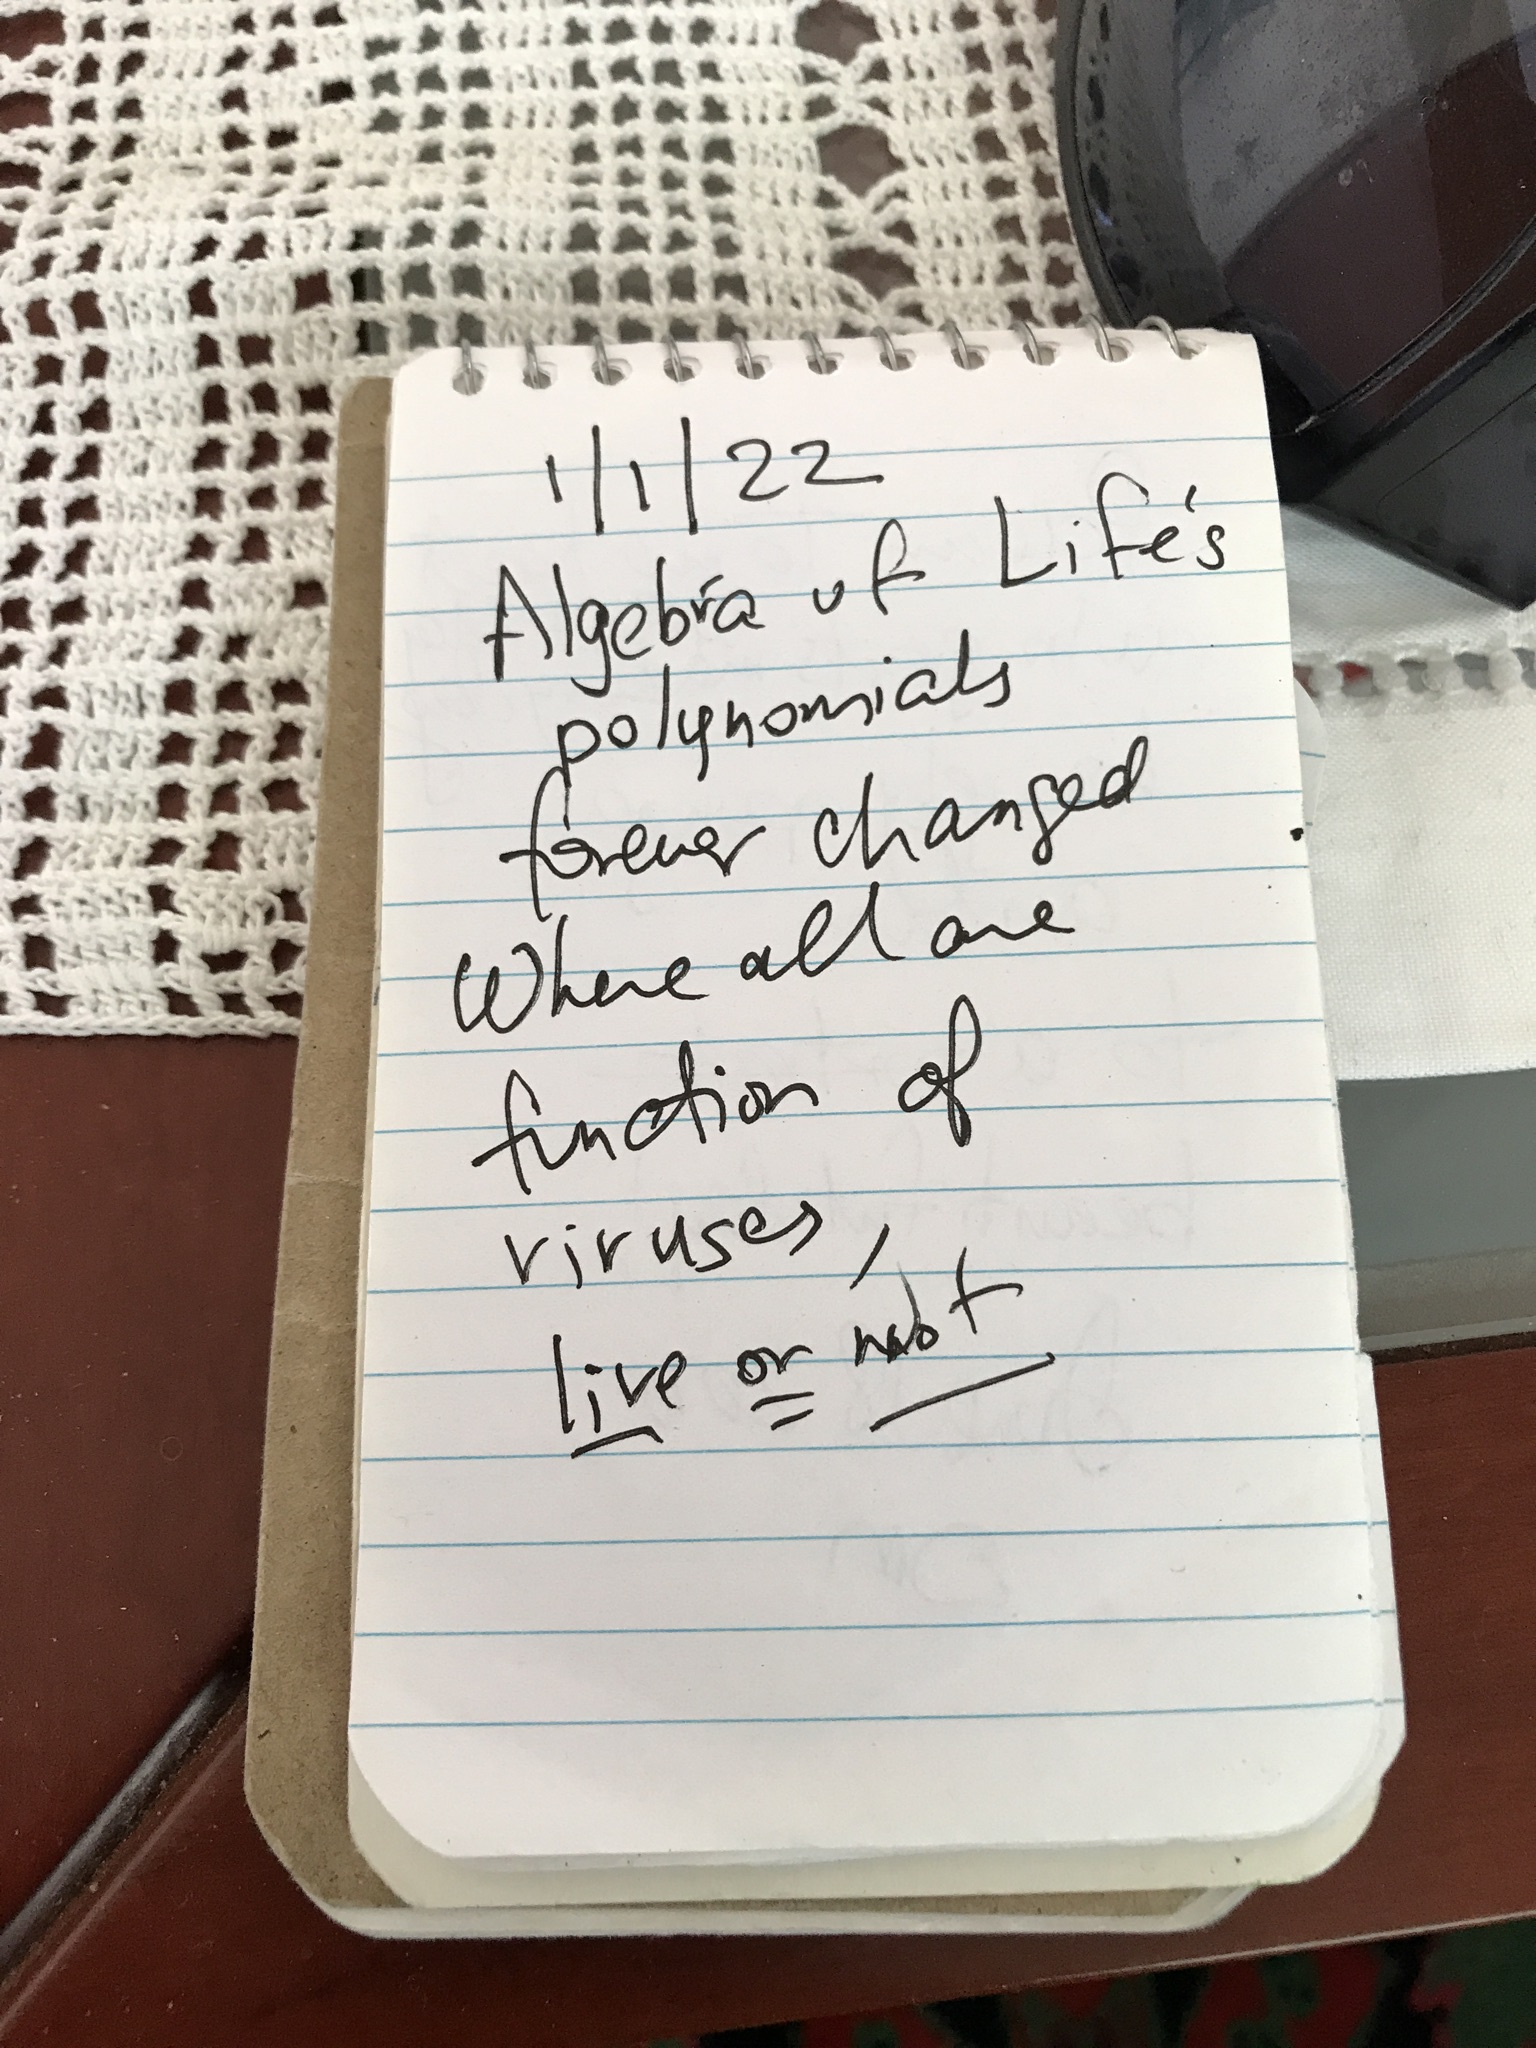 1/1/22
Algebra of Life's
polynomials
forever changed
Where all are
function of
viruses,
live or not